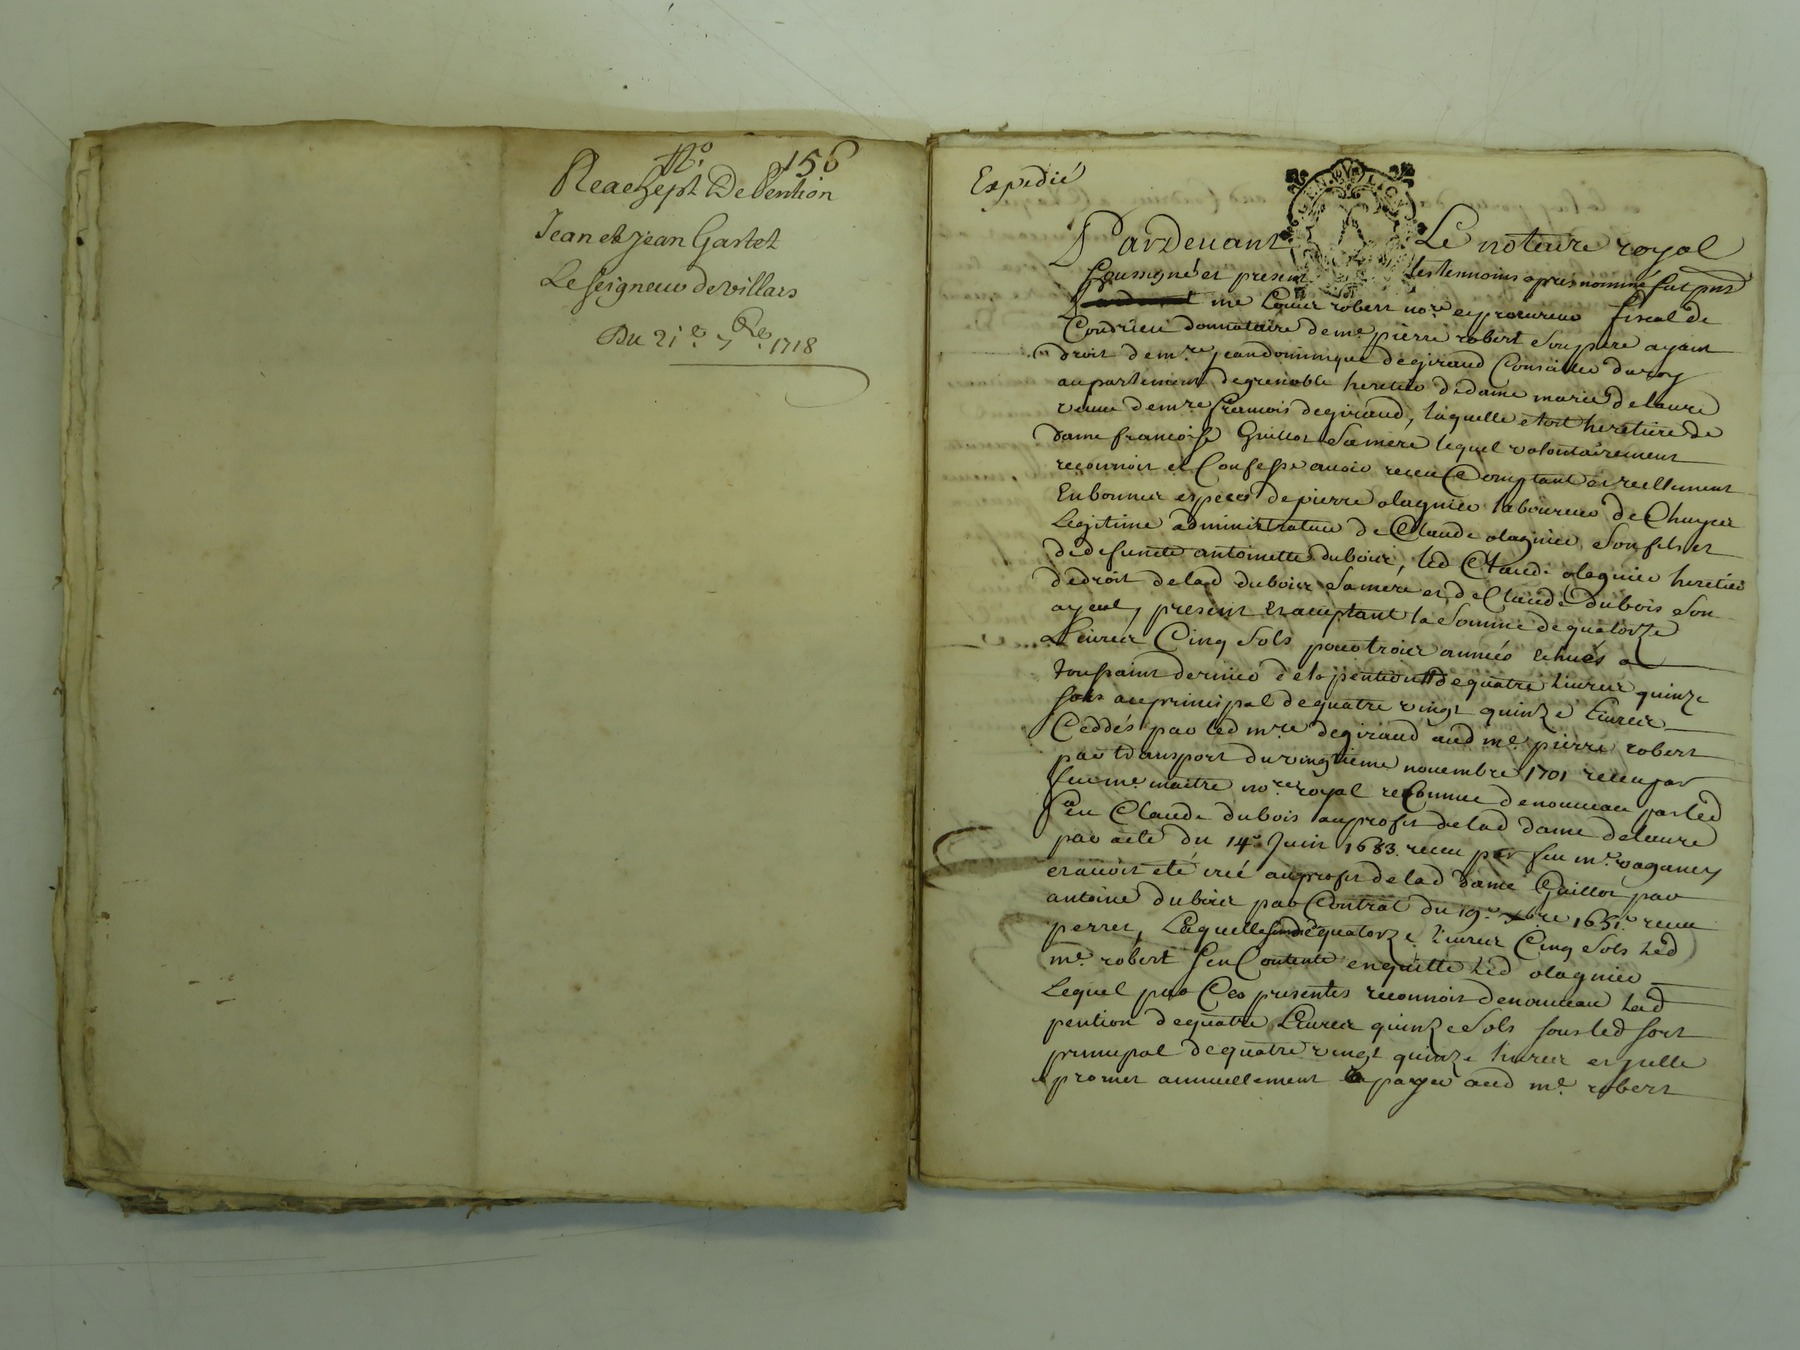 N.o 156
Reachept De Pention
Jean et Jean Gartet
Le seigneur de villars
Du 21.e 7bre. 1718
Expedié
Pardevant Le notaire royal
soussigné et presens les tesmoins apres nommé fut pnt
me Louis robert no.re et procureur fiscal de
Condrieu donnataire de me. pierre robert son pere ayant
droit de m.re jean dominique degiraud Conseiller du roy
au parlement de grenoble heretier de dame marie de laure
veuve de mre francois degiraud, laquelle etoit heretiere de
dame francoise Guillot sa mere lequel volontairement
reconnoit et Confesse avoir receu Comptant et reellement
En bonnes especes de pierre olagnier laboureur de Chuyer
Legitime administrateur de Claude olagnier son fils et
de defuncte antoinette dubois, led Claude olagnier heretier
de droit de lad dubois sa mere et de Claude dubois son
ayeul, present et acceptant la somme de quatorze
Livres Cinq sols pour trois années echues a
toussaint dernier de la pention de quatre livres quinze
sols au principal de quatre vingt quinze Livres
Ceddés par led m.re degiraud aud me. pierre robert
par transport du vingtieme novembre 1701 receu par
feu me. maitre no.re royal reconnue de nouveau par led
feu Claude dubois au profit de lad dame delaure
par acte du 14.e Juin 1683. receu par feu me. vaganey
et avoir eté creé au profit de lad dame Guillot par
antoine dubois par Contrat du 19.e xbre 1651. receu
perret, Laquelle somme de quatorze livres Cinq sols led
me. robert s'en Contente en quitte led olagnier
Lequel par Ces presentes reconnoit de nouveau lad
pention de quatre Livres quinze sols sous led sort
principal de quatre vingt quinze livres et icelle
promet annuellement payer aud me. robert